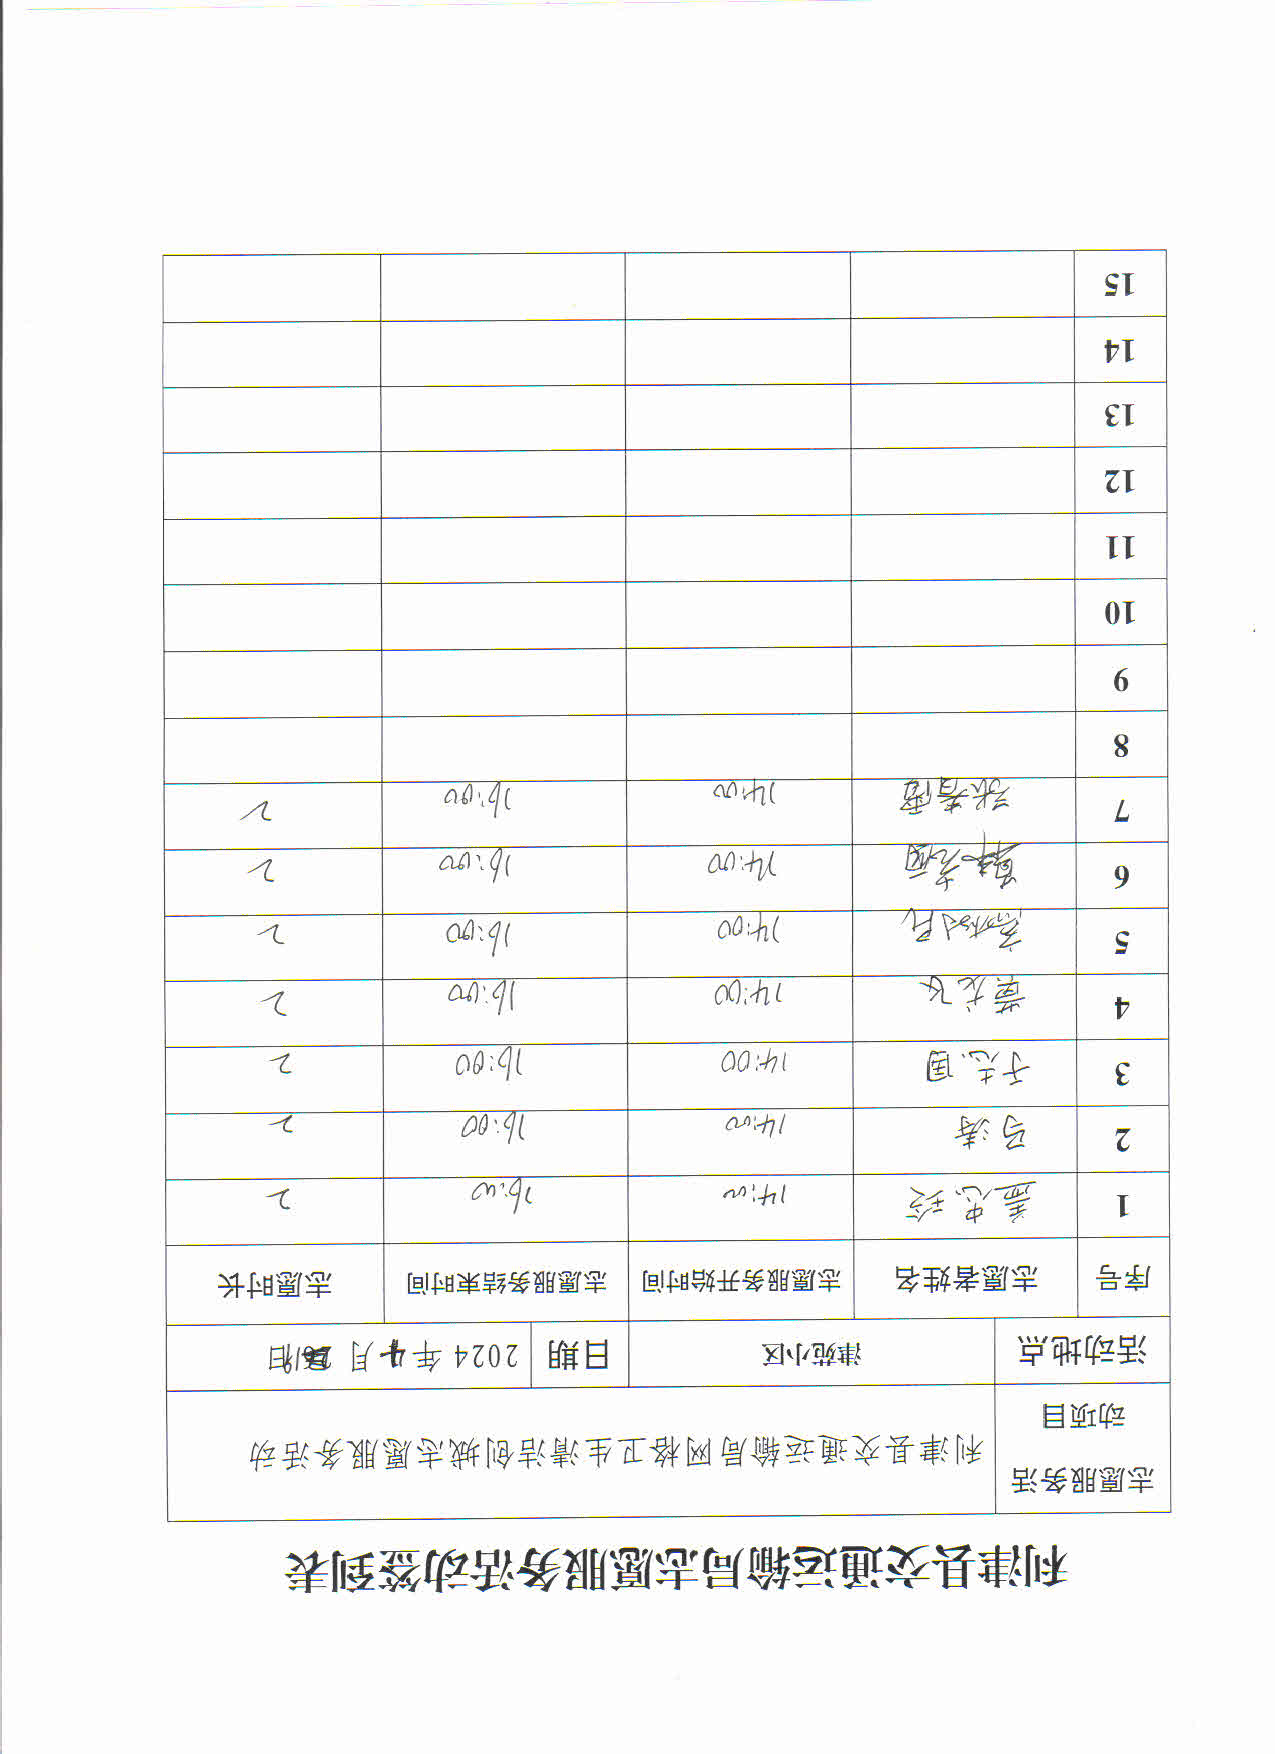 利津县交通运输局志愿服务活动签到表
志愿服务活动项目 利津县交通运输局网格卫生清洁创城志愿服务活动
活动地点 津苑小区 日期 2024年4月 日
序号 志愿者姓名 志愿服务开始时间 志愿服务结束时间 志愿时长
1 盖忠珍 14:00 16:00 2
2 马涛 14:00 16:00 2
3 于志国 14:00 16:00 2
4 董龙飞 14:00 16:00 2
5 14:00 16:00 2
6 14:00 16:00 2
7 张春霞 14:00 16:00 2
8
9
10
11
12
13
14
15